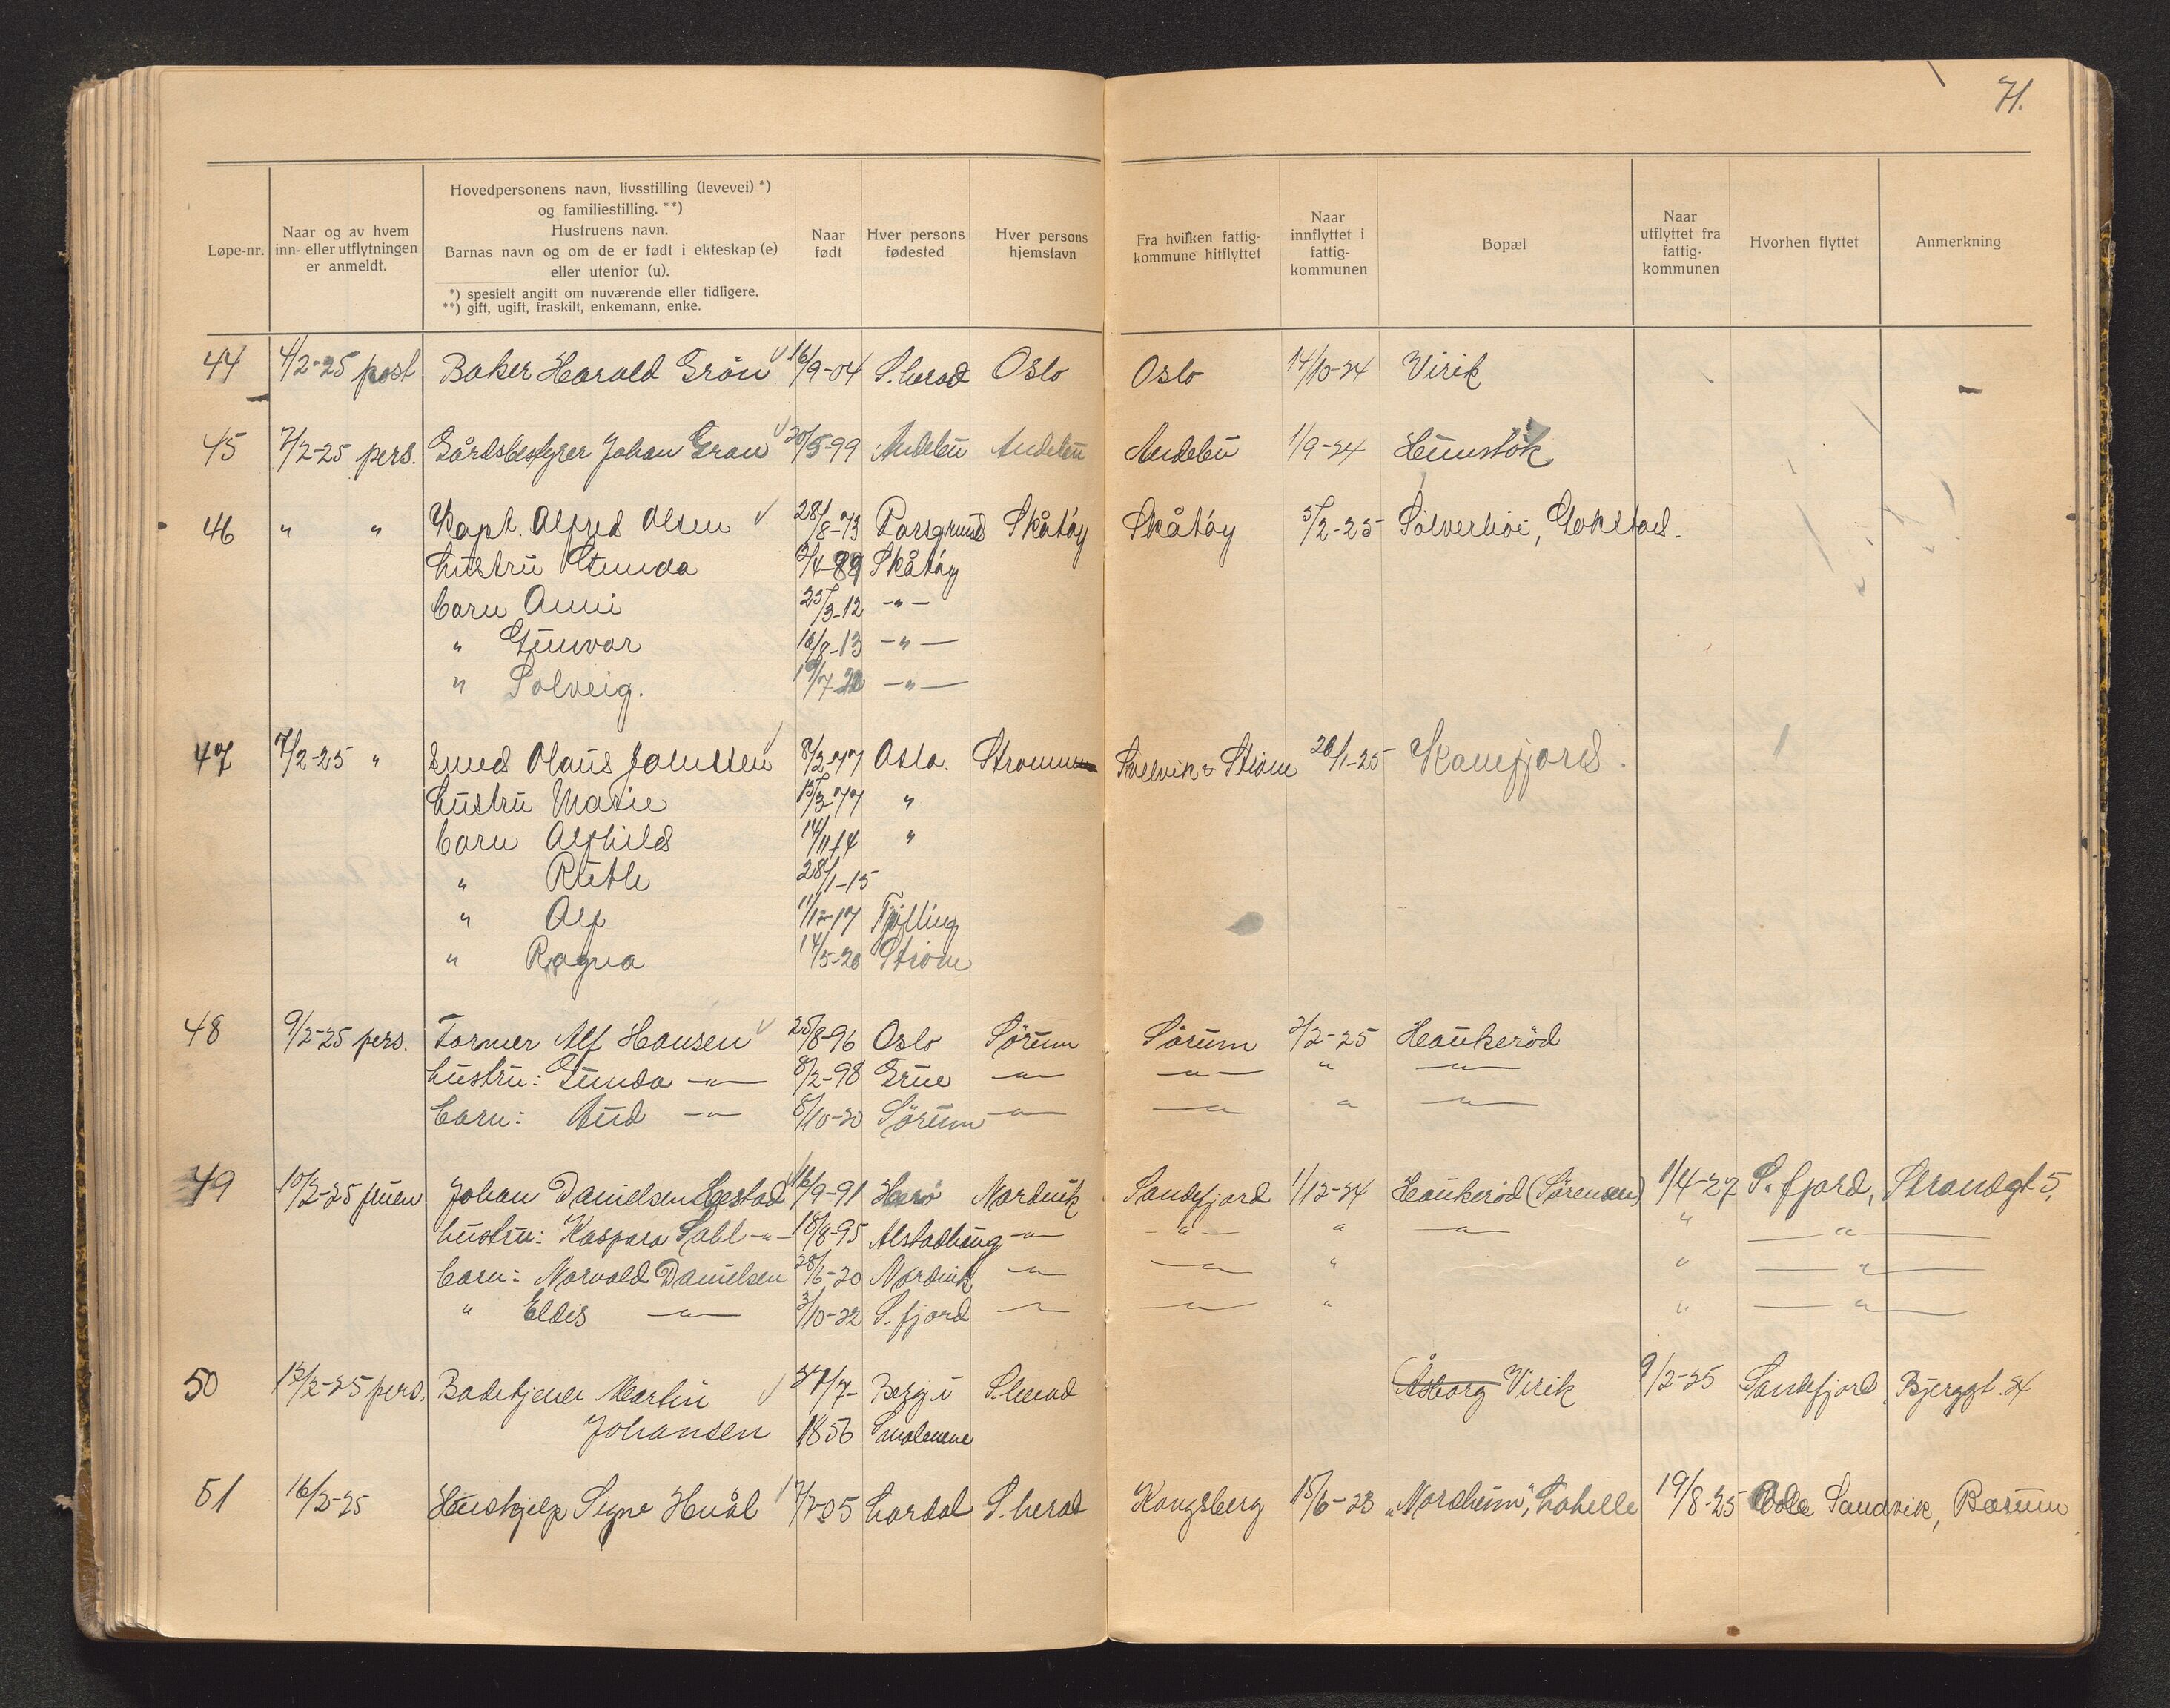 71.
Løpe-nr.
Naar og av hvem
inn- eller utflytningen
er anmeldt.
Hovedpersonens navn, livsstilling (levevei) *)
og familiestilling. **)
Hustruens navn.
Barnas navn og om de er født i ekteskap (e)
eller utenfor (u).
*) spesielt angitt om nuværende eller tidligere.
**) gift, ugift, fraskilt, enkemann, enke.
Naar
født
Hver persons
fødested
Hver persons
hjemstavn
Fra hvilken fattig-
kommune hitflyttet
Naar
innflyttet i
fattig-
kommunen
Bopæl
Naar
utflyttet fra
fattig-
kommunen
Hvorhen flyttet
Anmerkning
44 4/2-25 post Baker Harald Grön 16/9-04 S.herad Oslo Oslo 14/10-24 Virik
45 7/2-25 pers. Gårdsbestyrer Johan Gran 20/5-99 Andebu Andebu Andebu 1/9-24 Hunstok
46 " " Kapt. Alfred Olsen 28/8-73 Porsgrund Skåtöy Skåtöy 5/2-25 Sölverhöi, Gokstad.
hustru Gunda 3/4-89 Skåtöy
barn Anni 25/3-12 -"-
" Gunvor 10/8-13 -"-
" Solveig. 19/7-22 -"-
47 7/2-25 " Smed Olaus Johnsen 8/2-77 Oslo. Strømm Svelvik & Strøm 26/1-25 Kamfjord.
hustru Marie 15/3-77 "
barn Alfhild 14/11-14 "
" Ruth 28/1-15
" Alf 11/12-17 Tjølling
" Ragna 14/5-20 Strøm
48 9/2-25 pers. Former Alf Hansen 25/8-96 Oslo Sörum Sörum 2/2-25 Haukeröd
hustru: Gunda -"- 8/2-98 Grue -"- -"- " -"-
barn: Aud -"- 5/10-20 Sörum -"- -"- " -"-
49 10/2-25 fruen Johan Danielsen Hestad 16/9-91 Herö Nordvik Sandefjord 1/12-24 Haukeröd (Sörensen) 1/4-27 S.fjord, Strandgt 5,
hustru: Kaspara Dahl -"- 18/8-95 Alstadhaug -"- -"- " -"- " -"-
barn: Norvald Danielsen 28/6-20 Nordvik -"- -"- " " -"-
" Eldis -"- 3/10-22 S.fjord -"- -"- " " -"-
50 12/2-25 pers. Badetjener Martin 27/7- Berg i S.herad Åsborg Virik 9/2-25 Sandefjord, Bjerggt. 24
Johansen 1856 Smolenene
51 16/2-25 Hushjelp Signe Hvål 7/7-05 Lardal S.herad Kongsberg 15/6-23 "Nordheim", Lahelle 19/8-25 Odle Sandvik, Bærum